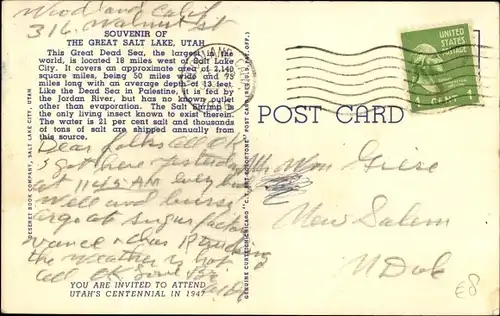 Woodland Calif
316. Walnut St
SOUVENIR OF
THE GREAT SALT LAKE, UTAH
This Great Dead Sea, the largest in the
world, is located 18 miles west of Salt Lake
City. It covers an approximate area of 2,140
square miles, being 50 miles wide and 75
miles long with an average depth of 13 feet.
Like the Dead Sea in Palestine, it is fed by
the Jordan River, but has no known outlet
other than evaporation. The Salt Shrimp is
the only living insect known to exist therein.
The water is 21 per cent salt and thousands
of tons of salt are shipped annually from
this source.
Dear folks all OK
got here yesterday
at 11:45 AM every
well and
sugar factory
the weather is hot
all OK
YOU ARE INVITED TO ATTEND
UTAH'S CENTENNIAL IN 1947
DESERET BOOK COMPANY, SALT LAKE CITY, UTAH
GENUINE CURTEICH-CHICAGO "C.T. ART-COLORTONE" POST CARD (REG. U.S. PAT. OFF.)
UNITED STATES
POSTAGE
1 CENT 1
POST CARD
Wm Giese
New Salem
N Dak
E8